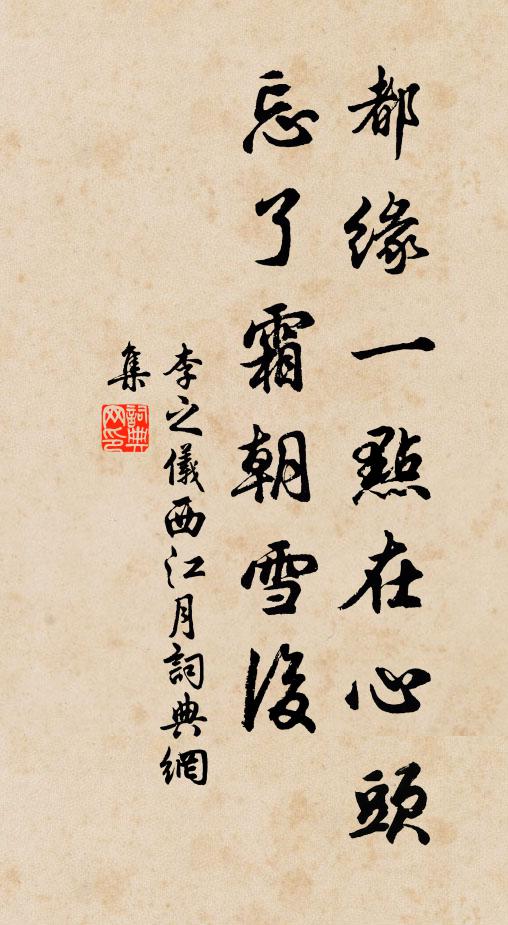 都緣一點在心頭
忘了霜朝雪後
李之儀西江月詞典網
集
詞典网印